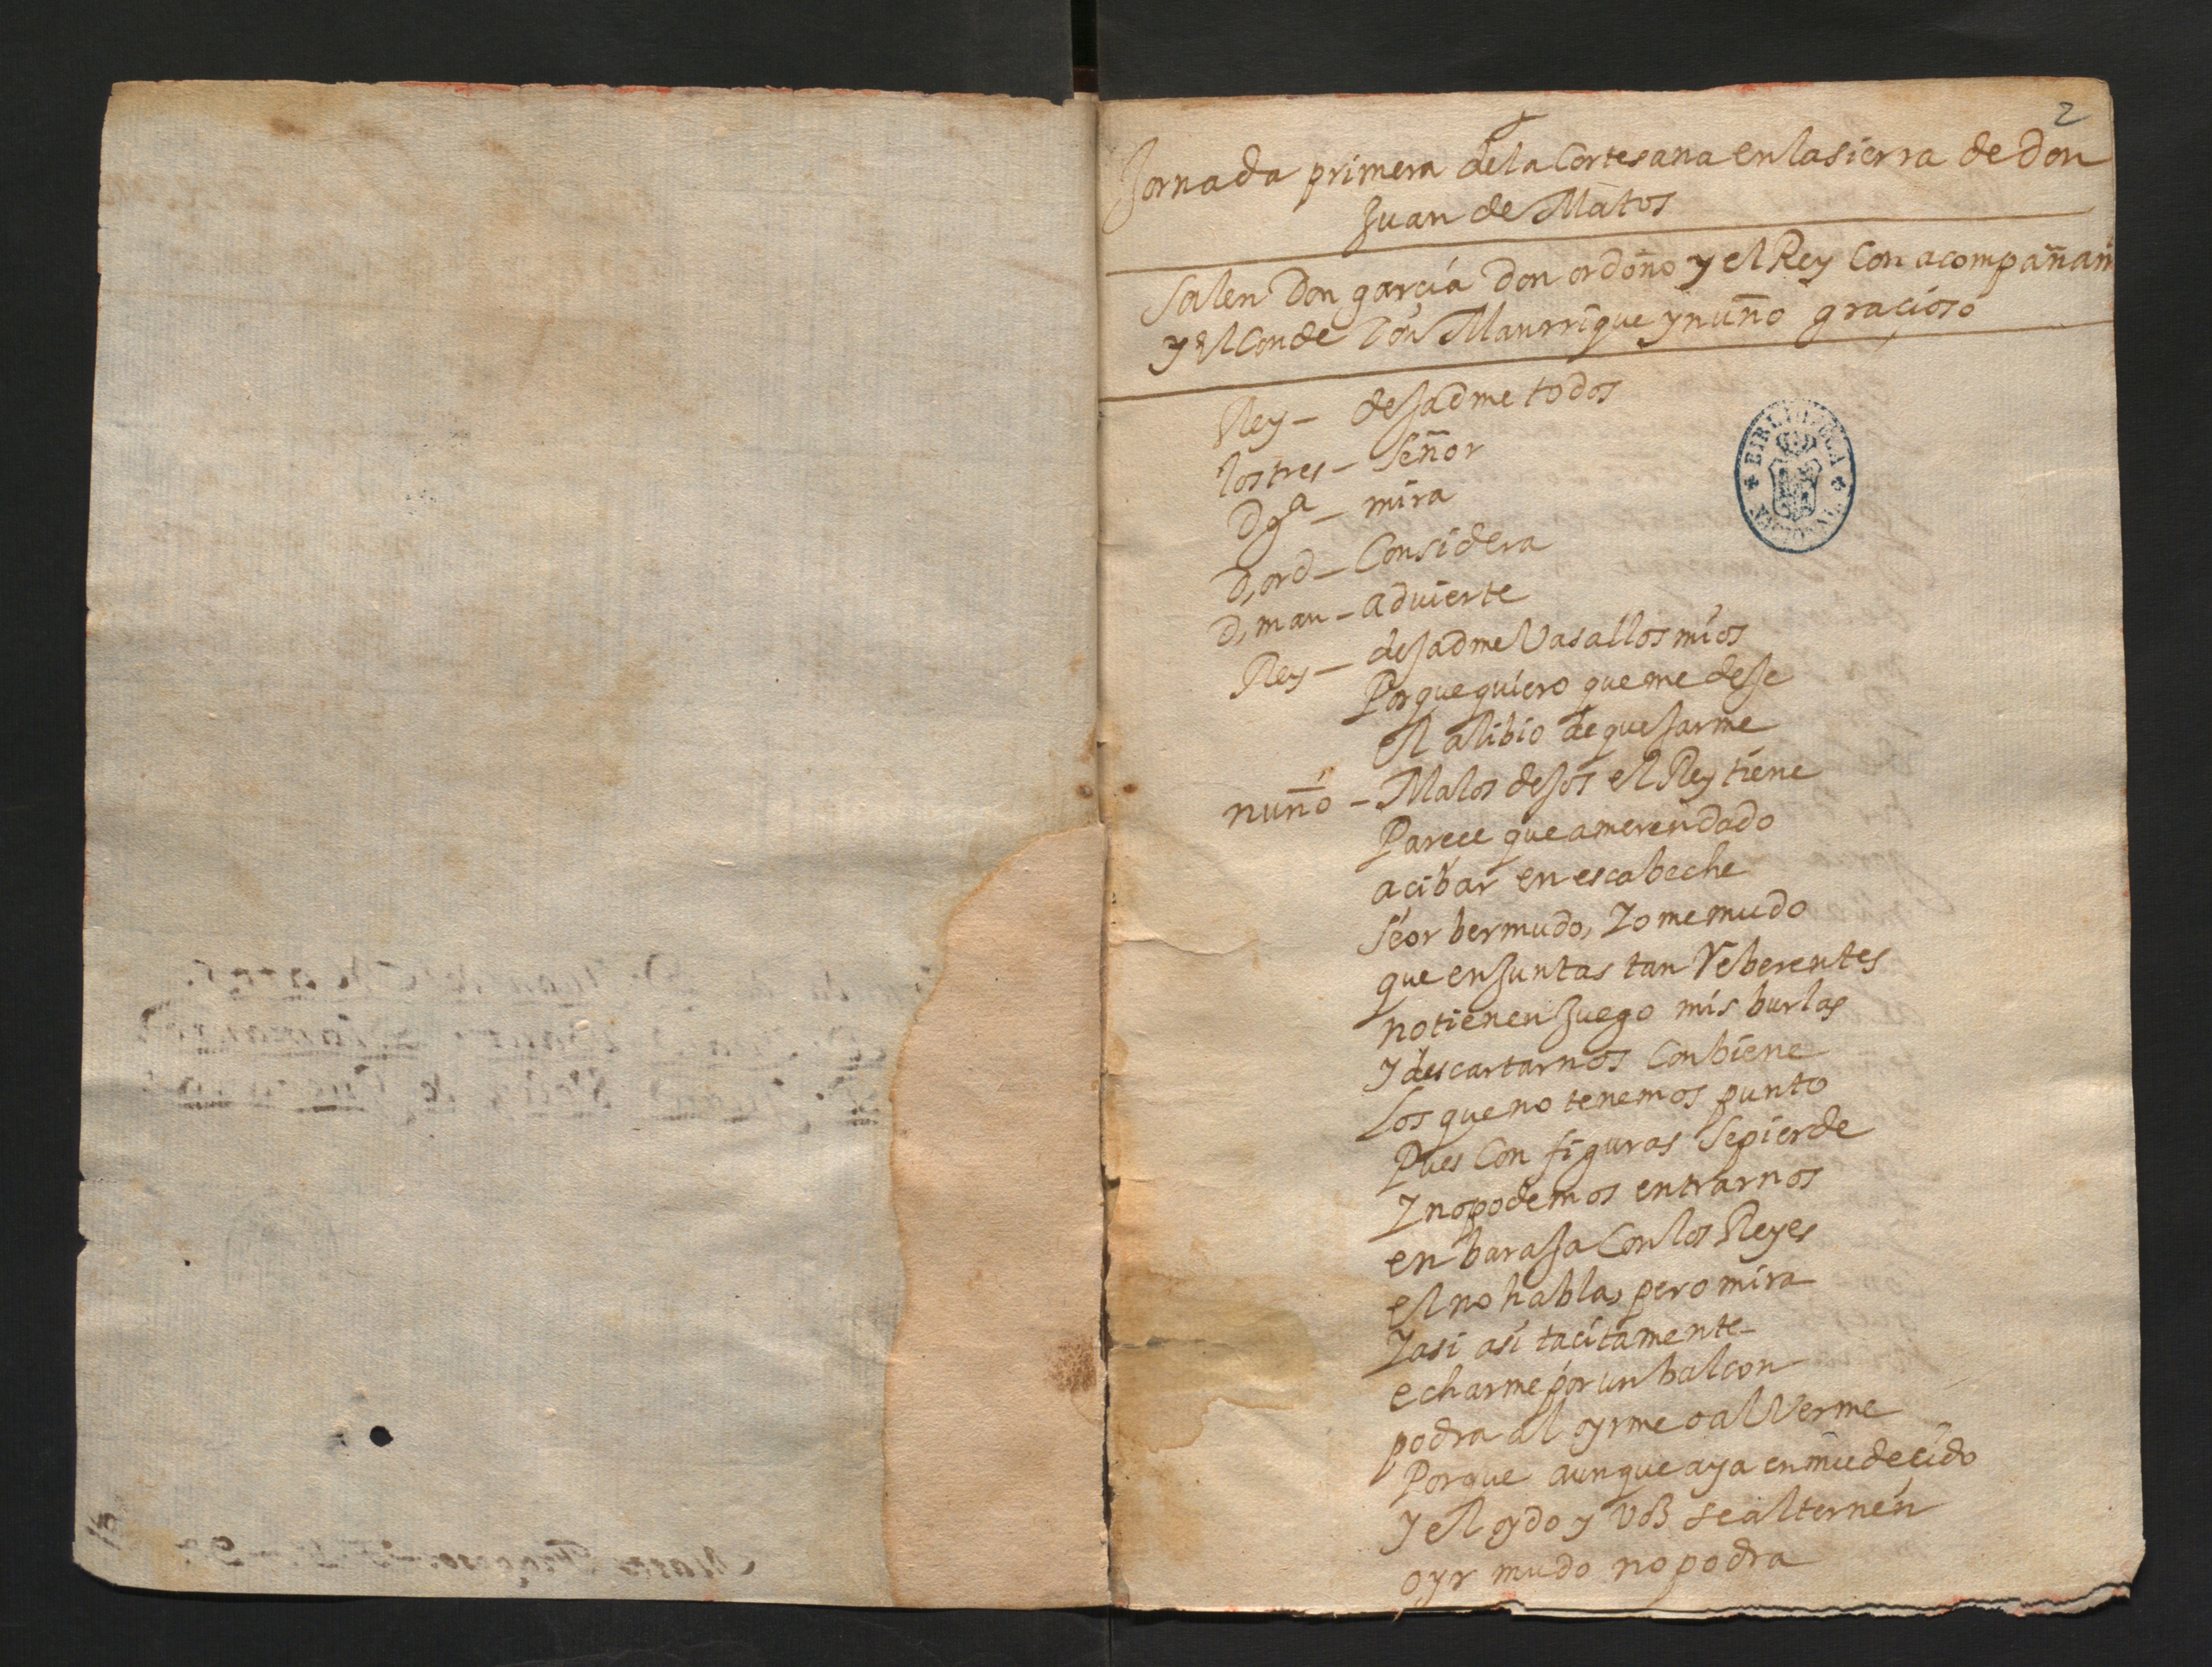 2
Jornada primera de la Cortesana en la sierra de Don
Juan de Matos
Salen Don garcia Don ordoño y el Rey Con acompañam
y el Conde Don Manrrique y nuño gracioso
Rey – deJadme todos
los tres – Señor
D gª – mira
D, ord – Considera
D, man – advierte
Rey – deJadme Vasallos mios
Porque quiero que me deJe
el alibio de queJarme
nuño – Malos deJos el Rey tiene
Parece que a merendado
acibar en escabeche
séor bermudo, Yo me mudo
que en Juntas tan Reberentes
no tienen Juego mis burlas
y descartarnos Conbiene
Los que no tenemos punto
Pues Con figuras Se pierde
Y no podemos entrarnos
en baraJa Con los Reyes
el no habla, pero mira
Y asi asi tacitamente
echarme por un balcon
podra al oyrme o al Verme
Porque aunque aya enmudecido
y el oydo y VoZ se alternen
oyr mudo no podra
BIBLIOTECA NACIONAL